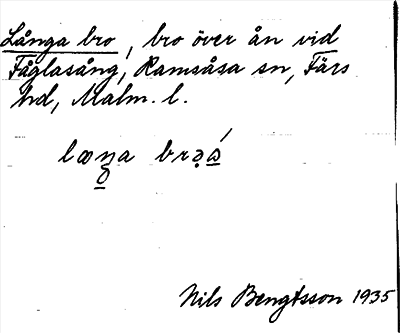 Långa bro, bro över ån vid
Fåglasång, Ramsåsa sn, Färs
hd, Malm. l.
Nils Bengtsson 1935